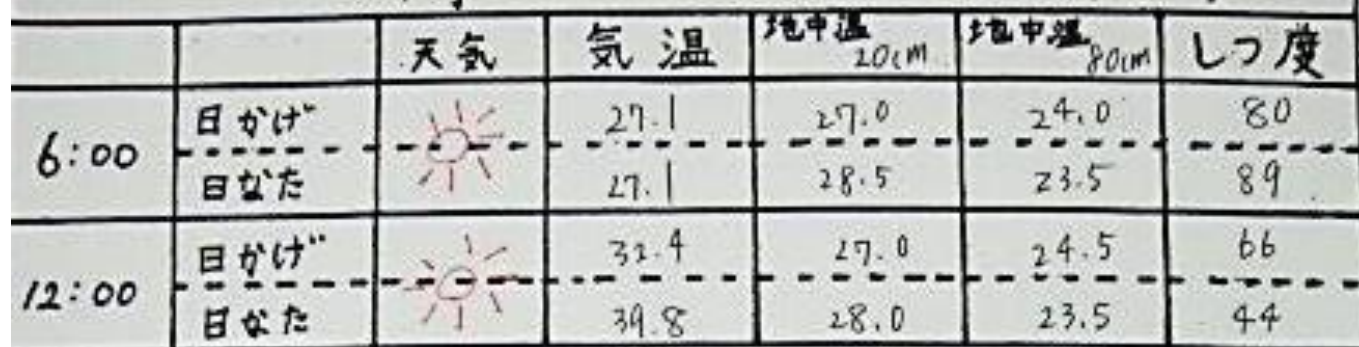 天気 気温 地中温20cm 地中温80cm しつ度
6:00 日かげ 27.1 27.0 24.0 80
日なた 27.1 28.5 23.5 89
12:00 日かげ 32.4 27.0 24.5 66
日なた 39.8 28.0 23.5 44